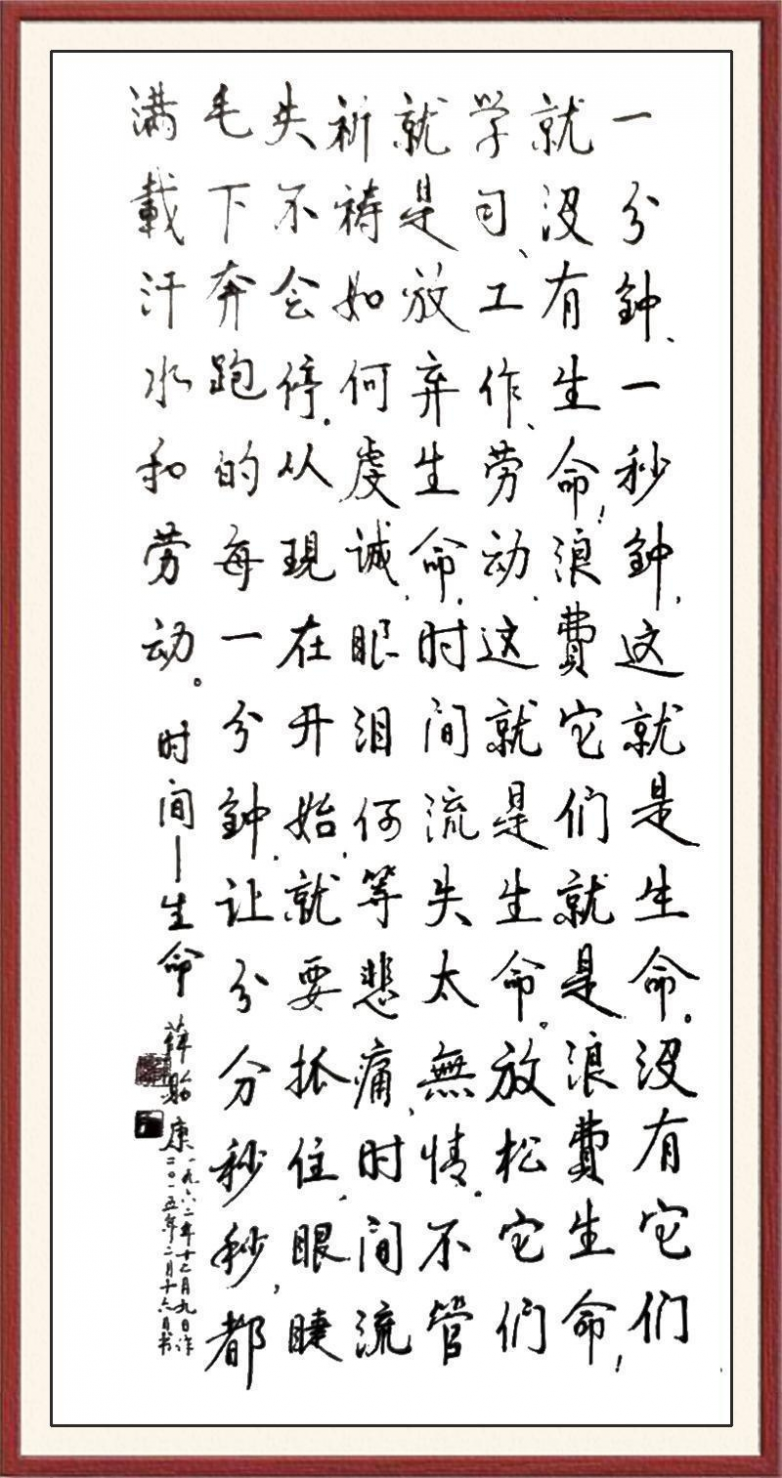 一分钟、一秒钟,这就是生命。没有它们
就没有生命!浪费它们就是浪费生命!
学习、工作、劳动,这就是生命。放松它们
就是放弃生命,时间流失太無情。不管
祈祷如何虔诚,眼泪何等悲痛,时间流
失不会停。从現在开始,就要抓住,眼睫
毛下奔跑的每一分钟,让分分秒秒,都
满載汗水和劳动。时间—生命
薛贻康
一九六二年十二月九日作
二〇一五年二月十六日书